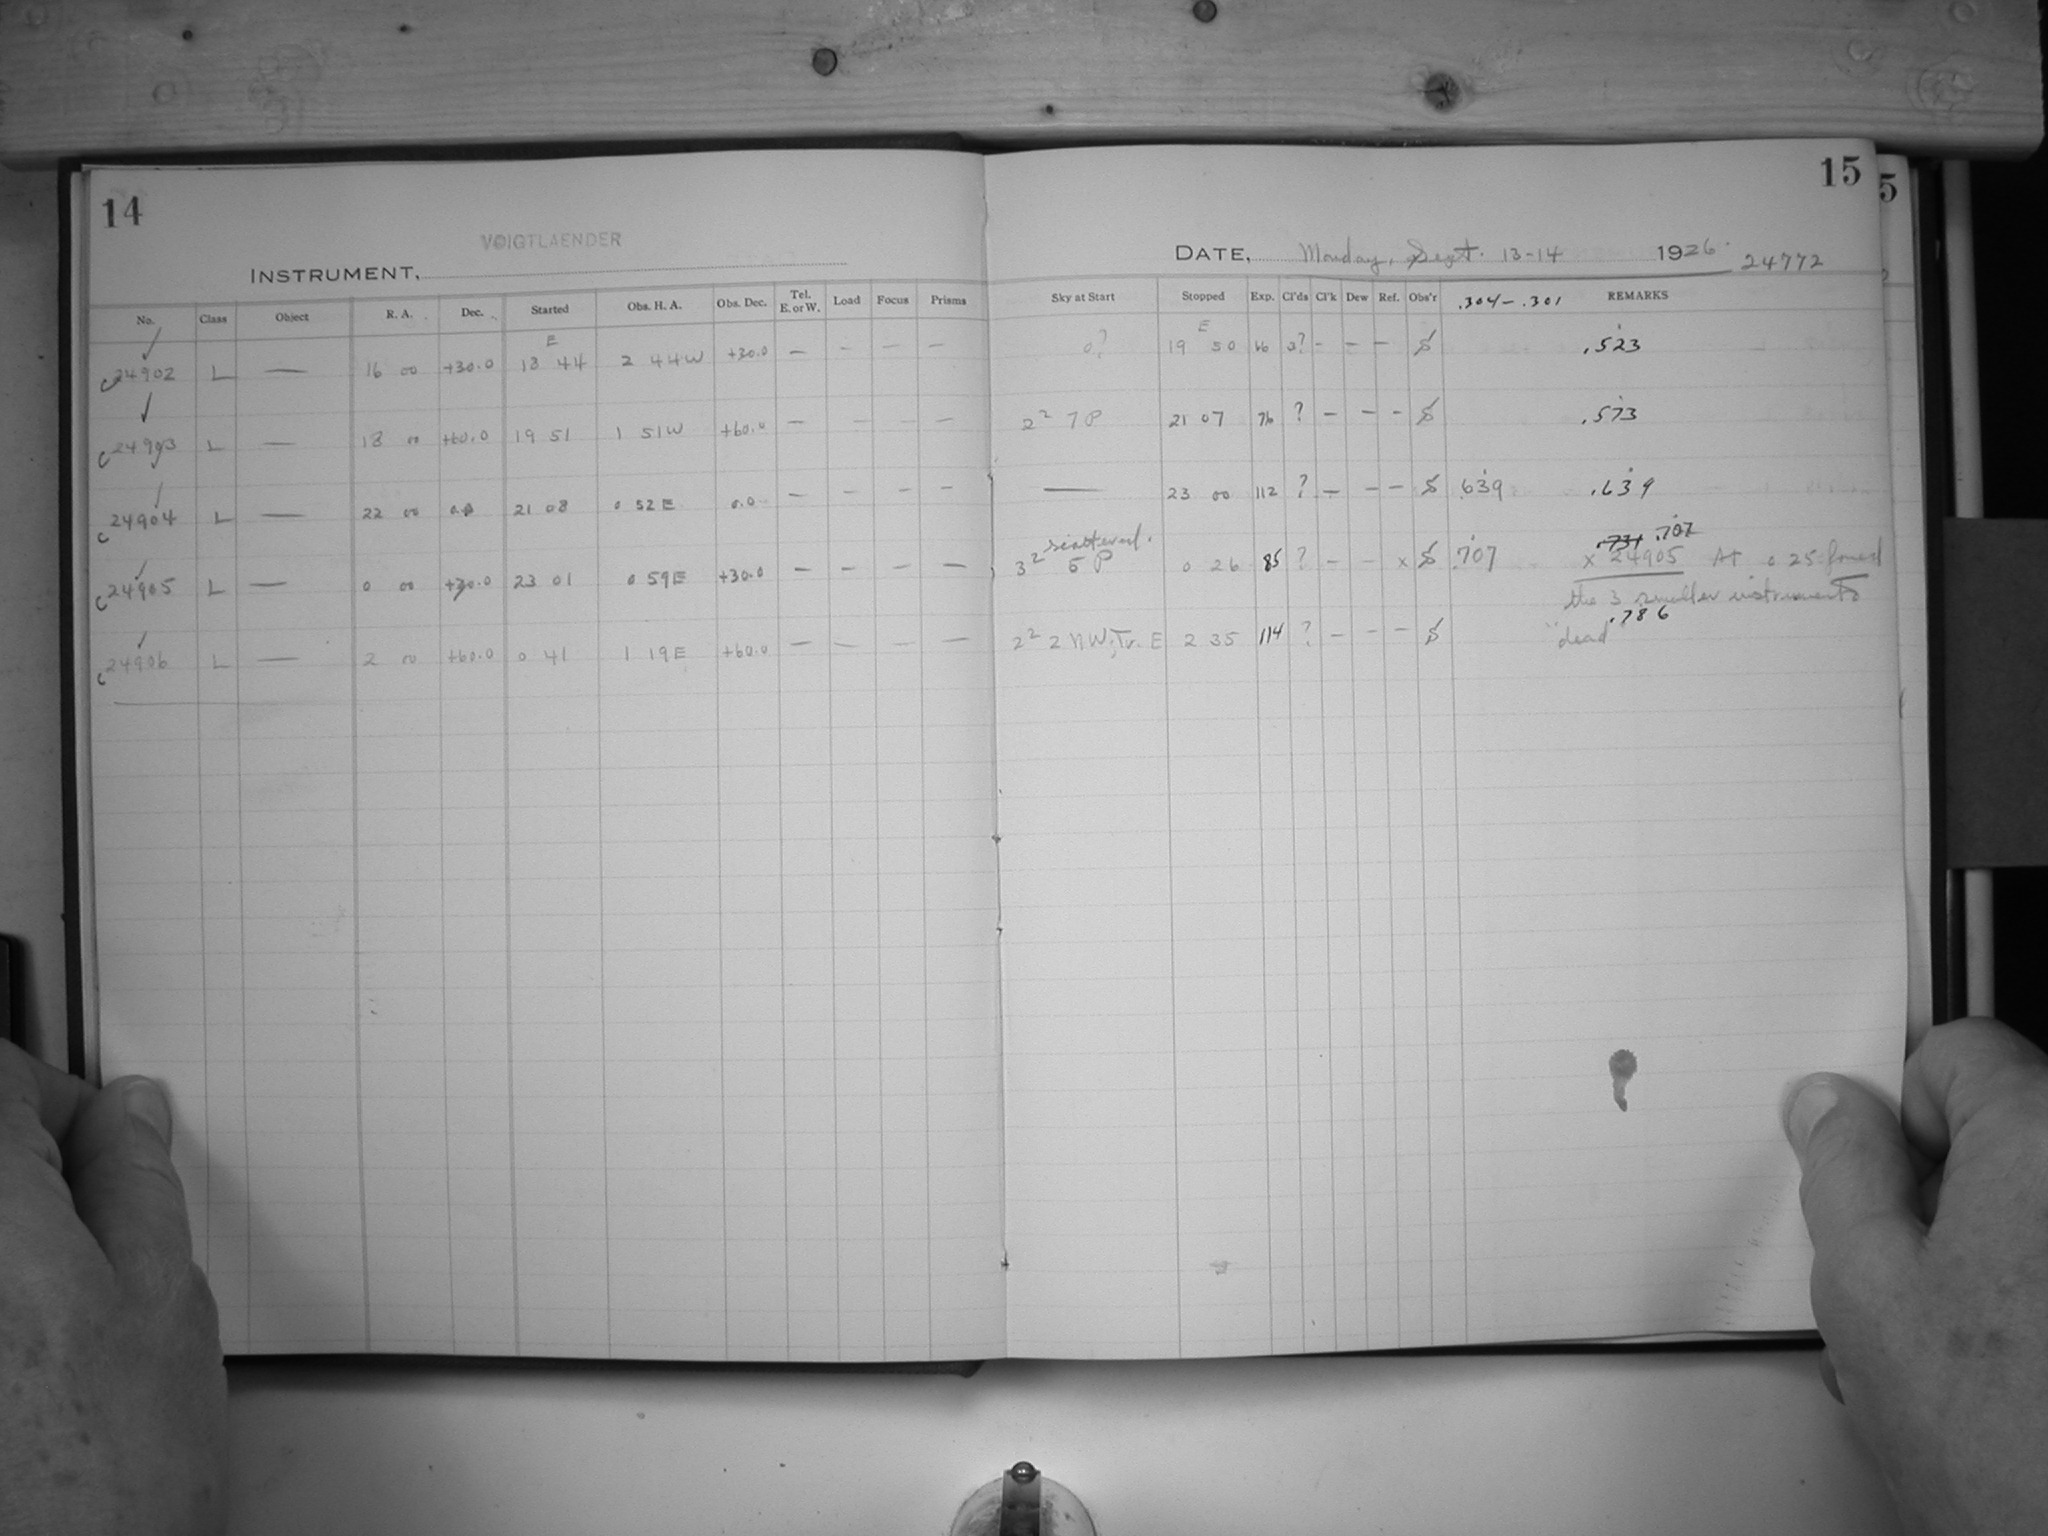 14
VOIGTLAENDER
INSTRUMENT,
No. Class Object R. A. Dec. Started Obs. H. A. Obs. Dec. Tel. E. or W. Load Focus Prisms
E
c24902 L — 16 00 +30.0 18 44 2 44W +30.0 — — — —
c24903 L — 18 00 +60.0 19 51 1 51W +60.0 — — — —
c24904 L — 22 00 0.0 21 08 0 52E 0.0 — — — —
c24905 L — 0 00 +30.0 23 01 0 59E +30.0 — — — —
c24906 L — 2 00 +60.0 0 41 1 19E +60.0 — — — —
15
5
DATE, Monday, Sept. 13-14 1926. 24772
Sky at Start Stopped Exp. Cl'ds Cl'k Dew Ref. Obs'r .304 – .301 REMARKS
E
0? 19 50 66 ? — — — S .523
2² 7P 21 07 76 ? — — — S .573
— 23 00 112 ? — — — S .639 .639
scattered. .731 .707
3² 5 P 0 26 85 ? — — x S .707 x 24905 At 0 25 found
the 3 smaller instruments
.786
2² 2 NW; Tr. E 2 35 114 ? — — — S "dead"